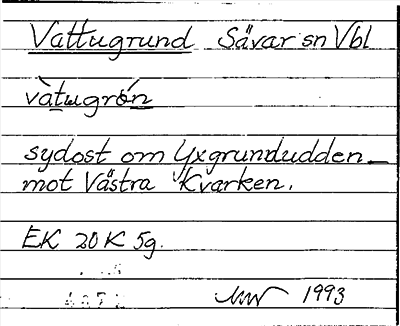 Vattugrund Sävar sn Vbl
vàtugrón
sydost om Yxgrundudden
mot Västra Kvarken.
EK 20 K 5g.
1993